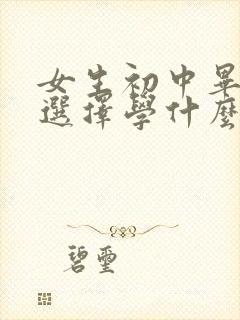 女生初中畢
選擇學什麼
碧璽